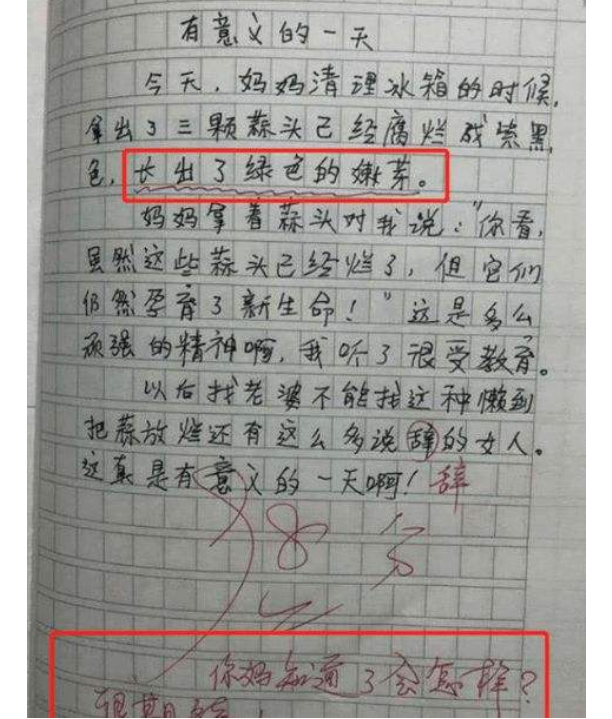 有意义的一天
今天，妈妈清理冰箱的时候，
拿出了三颗蒜头已经腐烂成紫黑
色，长出了绿色的嫩芽。
妈妈拿着蒜头对我说："你看，
虽然这些蒜头已经烂了，但它们
仍然孕育了新生命！"这是多么
顽强的精神啊，我听了很受教育。
以后找老婆不能找这种懒到
把蒜放烂还有这么多说辞的女人。
这真是有意义的一天啊！辞
98分
你妈知道了会怎样？
很期待